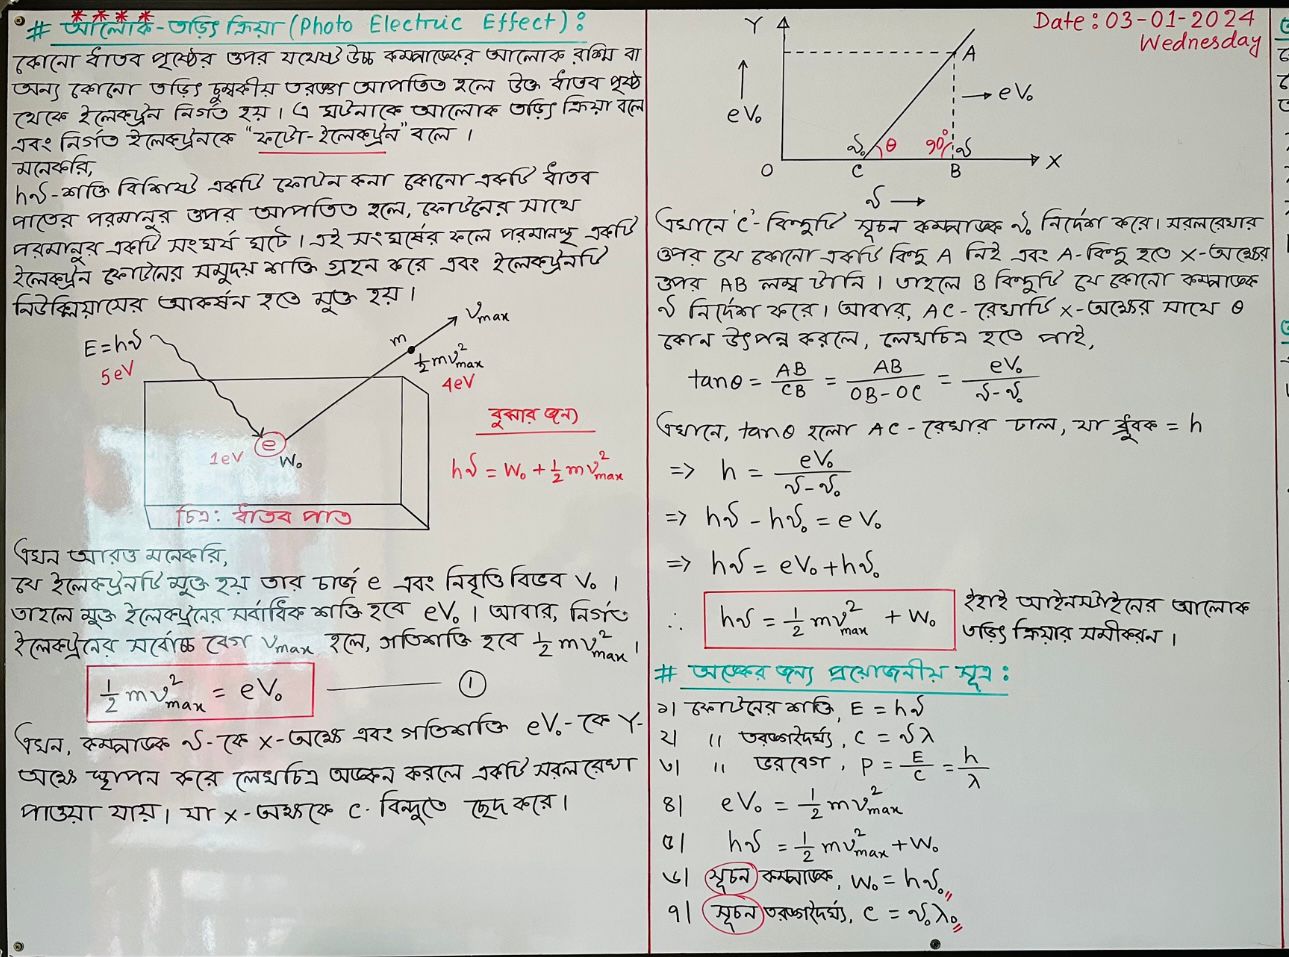 # আলোক-তড়িৎ ক্রিয়া (Photo Electric Effect) :
কোনো ধাতব পৃষ্ঠের ওপর যথেষ্ট উচ্চ কম্পাঙ্কের আলোক রশ্মি বা
অন্য কোনো তড়িৎ চুম্বকীয় তরঙ্গ আপতিত হলে উক্ত ধাতব পৃষ্ঠ
থেকে ইলেকট্রন নির্গত হয়। এ ঘটনাকে আলোক তড়িৎ ক্রিয়া বলে
এবং নির্গত ইলেকট্রনকে "ফটো-ইলেকট্রন" বলে ।
মনেকরি,
hν-শক্তি বিশিষ্ট একটি ফোটন কনা কোনো একটি ধাতব
পাতের পরমানুর ওপর আপতিত হলে, ফোটনের সাথে
পরমানুর একটি সংঘর্ষ ঘটে। এই সংঘর্ষের ফলে পরমানুস্থ একটি
ইলেকট্রন ফোটনের সমুদয় শক্তি গ্রহন করে এবং ইলেকট্রনটি
নিউক্লিয়াসের আকর্ষন হতে মুক্ত হয়।
E=hν
5eV
m
v_max
½mv²_max
4eV
e
1eV
W₀
চিত্র: ধাতব পাত
বুঝার জন্য
hν = W₀ + ½mv²_max
এখন আরও মনেকরি,
যে ইলেকট্রনটি মুক্ত হয় তার চার্জ e এবং নিবৃত্তি বিভব V₀ ।
তাহলে মুক্ত ইলেকট্রনের সর্বাধিক শক্তি হবে eV₀। আবার, নির্গত
ইলেকট্রনের সর্বোচ্চ বেগ v_max হলে, গতিশক্তি হবে ½mv²_max।
½mv²_max = eV₀ ——— ①
এখন, কম্পাঙ্ক ν-কে X-অক্ষে এবং গতিশক্তি eV₀-কে Y-
অক্ষে স্থাপন করে লেখচিত্র অঙ্কন করলে একটি সরলরেখা
পাওয়া যায়। যা X-অক্ষকে C-বিন্দুতে ছেদ করে।
Date : 03-01-2024
Wednesday
Y
A
eV₀
→ eV₀
ν₀ θ 90° ν
O C B X
ν →
এখানে 'C'-বিন্দুটি সূচন কম্পাঙ্ক ν₀ নির্দেশ করে। সরলরেখার
ওপর যে কোনো একটি বিন্দু A নিই এবং A-বিন্দু হতে X-অক্ষের
ওপর AB লম্ব টানি । তাহলে B বিন্দুটি যে কোনো কম্পাঙ্ক
ν নির্দেশ করে। আবার, AC-রেখাটি X-অক্ষের সাথে θ
কোন উৎপন্ন করলে, লেখচিত্র হতে পাই,
tanθ = AB/CB = AB/(OB-OC) = eV₀/(ν-ν₀)
এখানে, tanθ হলো AC-রেখার ঢাল, যা ধ্রুবক = h
=> h = eV₀/(ν-ν₀)
=> hν - hν₀ = eV₀
=> hν = eV₀+hν₀
∴ hν = ½mv²_max + W₀ ইহাই আইনস্টাইনের আলোক
তড়িৎ ক্রিয়ার সমীকরন।
# অঙ্কের জন্য প্রয়োজনীয় সূত্র :
১। ফোটনের শক্তি, E = hν
২। " তরঙ্গদৈর্ঘ্য, C = νλ
৩। " ভরবেগ, P = E/C = h/λ
৪। eV₀ = ½mv²_max
৫। hν = ½mv²_max + W₀
৬। সূচন কম্পাঙ্ক, W₀ = hν₀
৭। সূচন তরঙ্গদৈর্ঘ্য, C = ν₀λ₀